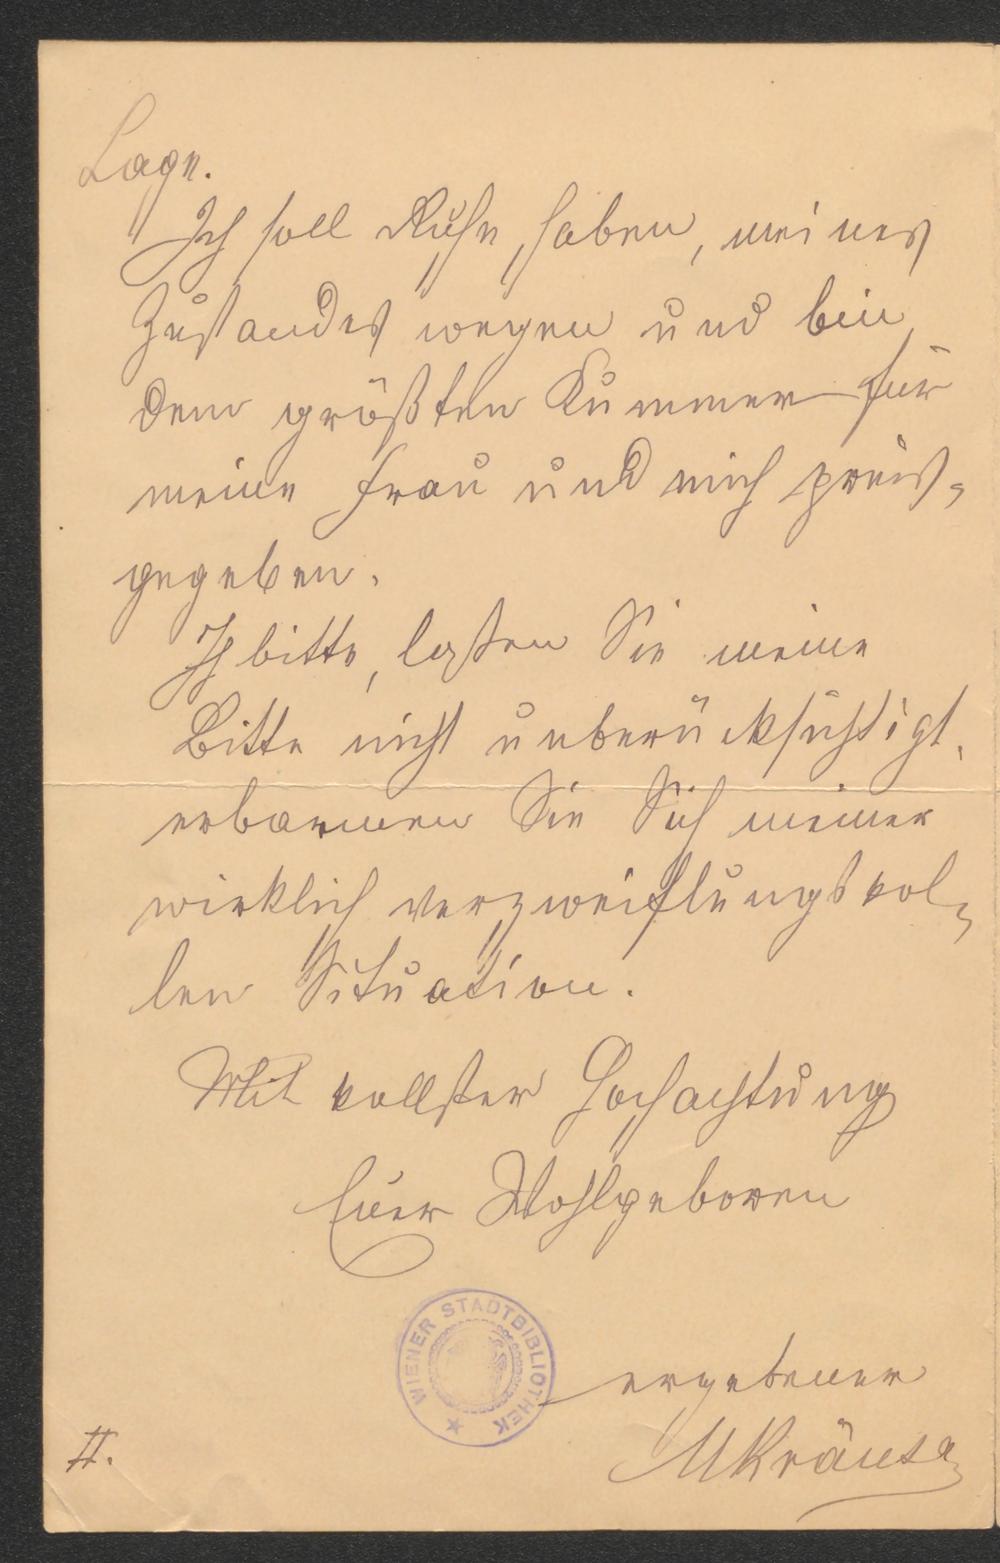 Lage.
Ich soll Ruhe haben, meines
Zustandes wegen und bin
dem größten Kummer für
meine Frau und mich preis-
gegeben.
Ich bitte, laßen Sie meine
Bitte nicht unberücksichtigt,
erbarmen Sie Sich meiner
wirklich verzweiflungsvol-
len Situation.
Mit vollster Hochachtung
Euer Wohlgeboren
WIENER STADTBIBLIOTHEK
ergebener
II.